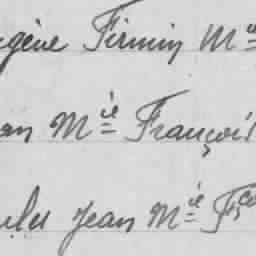 gène Firmin M
an Mie François
ules Jean Mie Fço